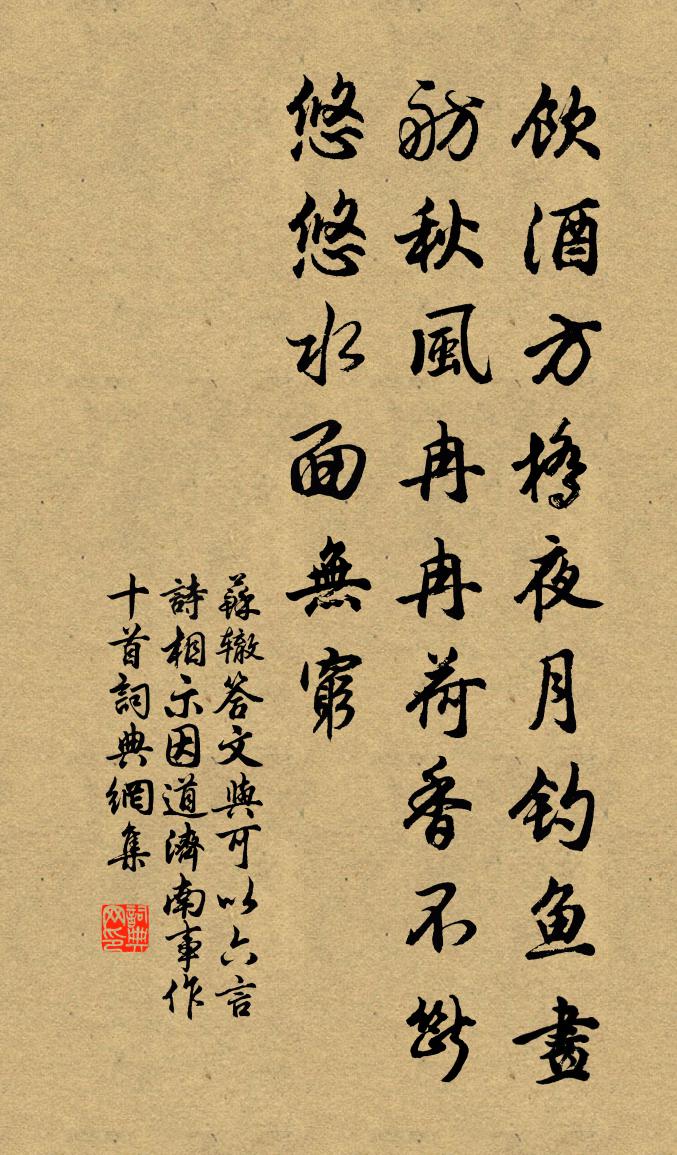 飲酒方橋夜月釣魚畫
舫秋風冉冉荷香不斷
悠悠水面無窮
蘇轍答文與可以六言
詩相示因道濟南事作
十首詞典網集
詞典
网印